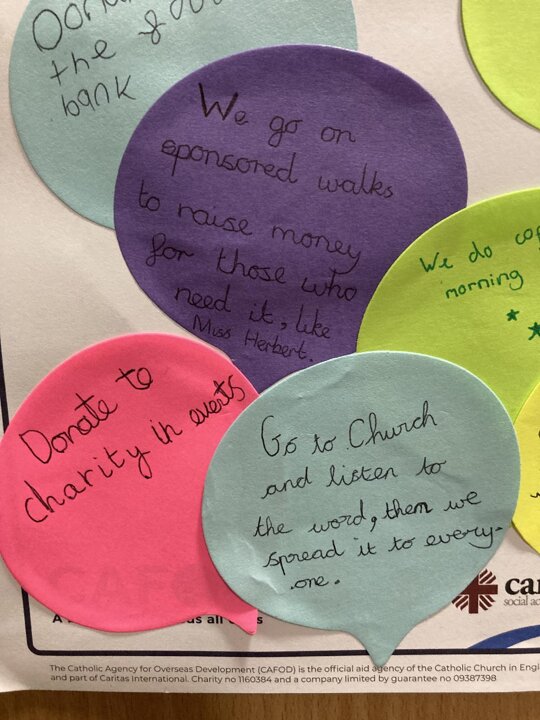 the
bank
We go on
sponsored walks
to raise money
for those who
need it, like
Miss Herbert.
We do
morning
Donate to
charity in events
Go to Church
and listen to
the word, then we
spread it to every-
one.
CAFOD
A
us all
social
The Catholic Agency for Overseas Development (CAFOD) is the official aid agency of the Catholic Church in
and part of Caritas International. Charity no 1160384 and a company limited by guarantee no 09387398